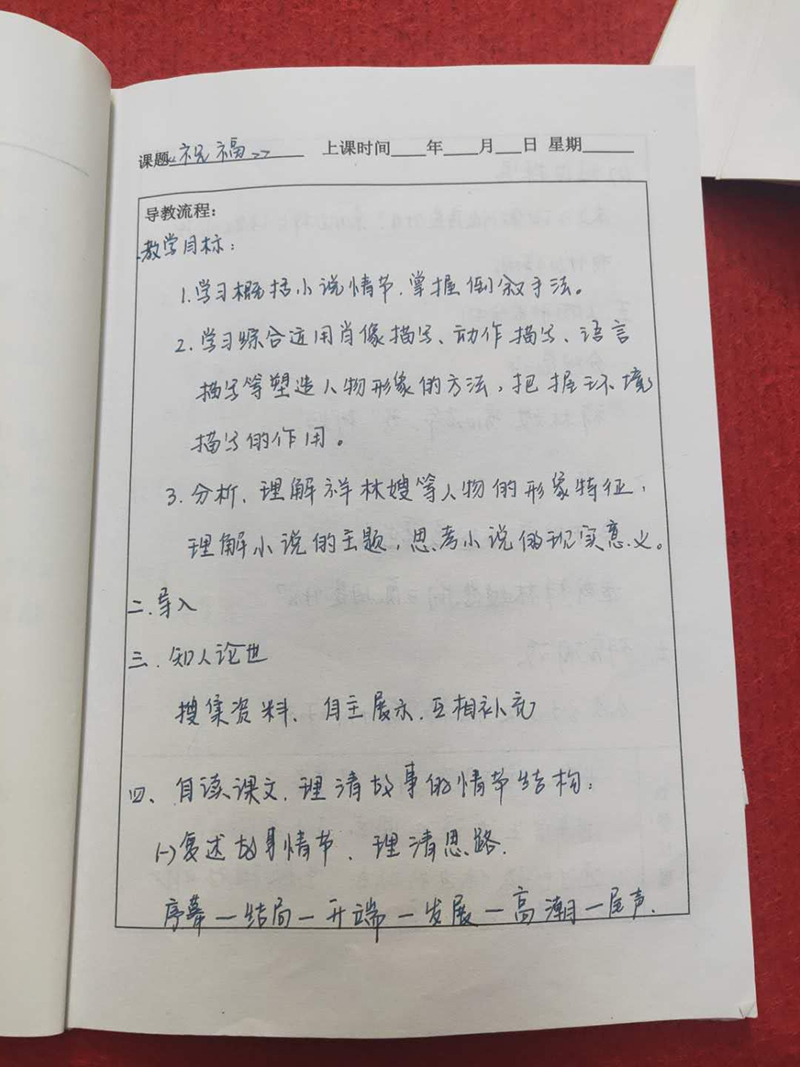 课题《祝福》 上课时间____年____月____日 星期______
导教流程：
一.教学目标：
1.学习概括小说情节，掌握倒叙手法。
2.学习综合运用肖像描写、动作描写、语言
描写等塑造人物形象的方法，把握环境
描写的作用。
3.分析、理解祥林嫂等人物的形象特征，
理解小说的主题，思考小说的现实意义。
二.导入
三.知人论世
搜集资料、自主展示、互相补充
四、自读课文，理清故事的情节结构：
(一)复述故事情节、理清思路.
序幕—结局—开端—发展—高潮—尾声.